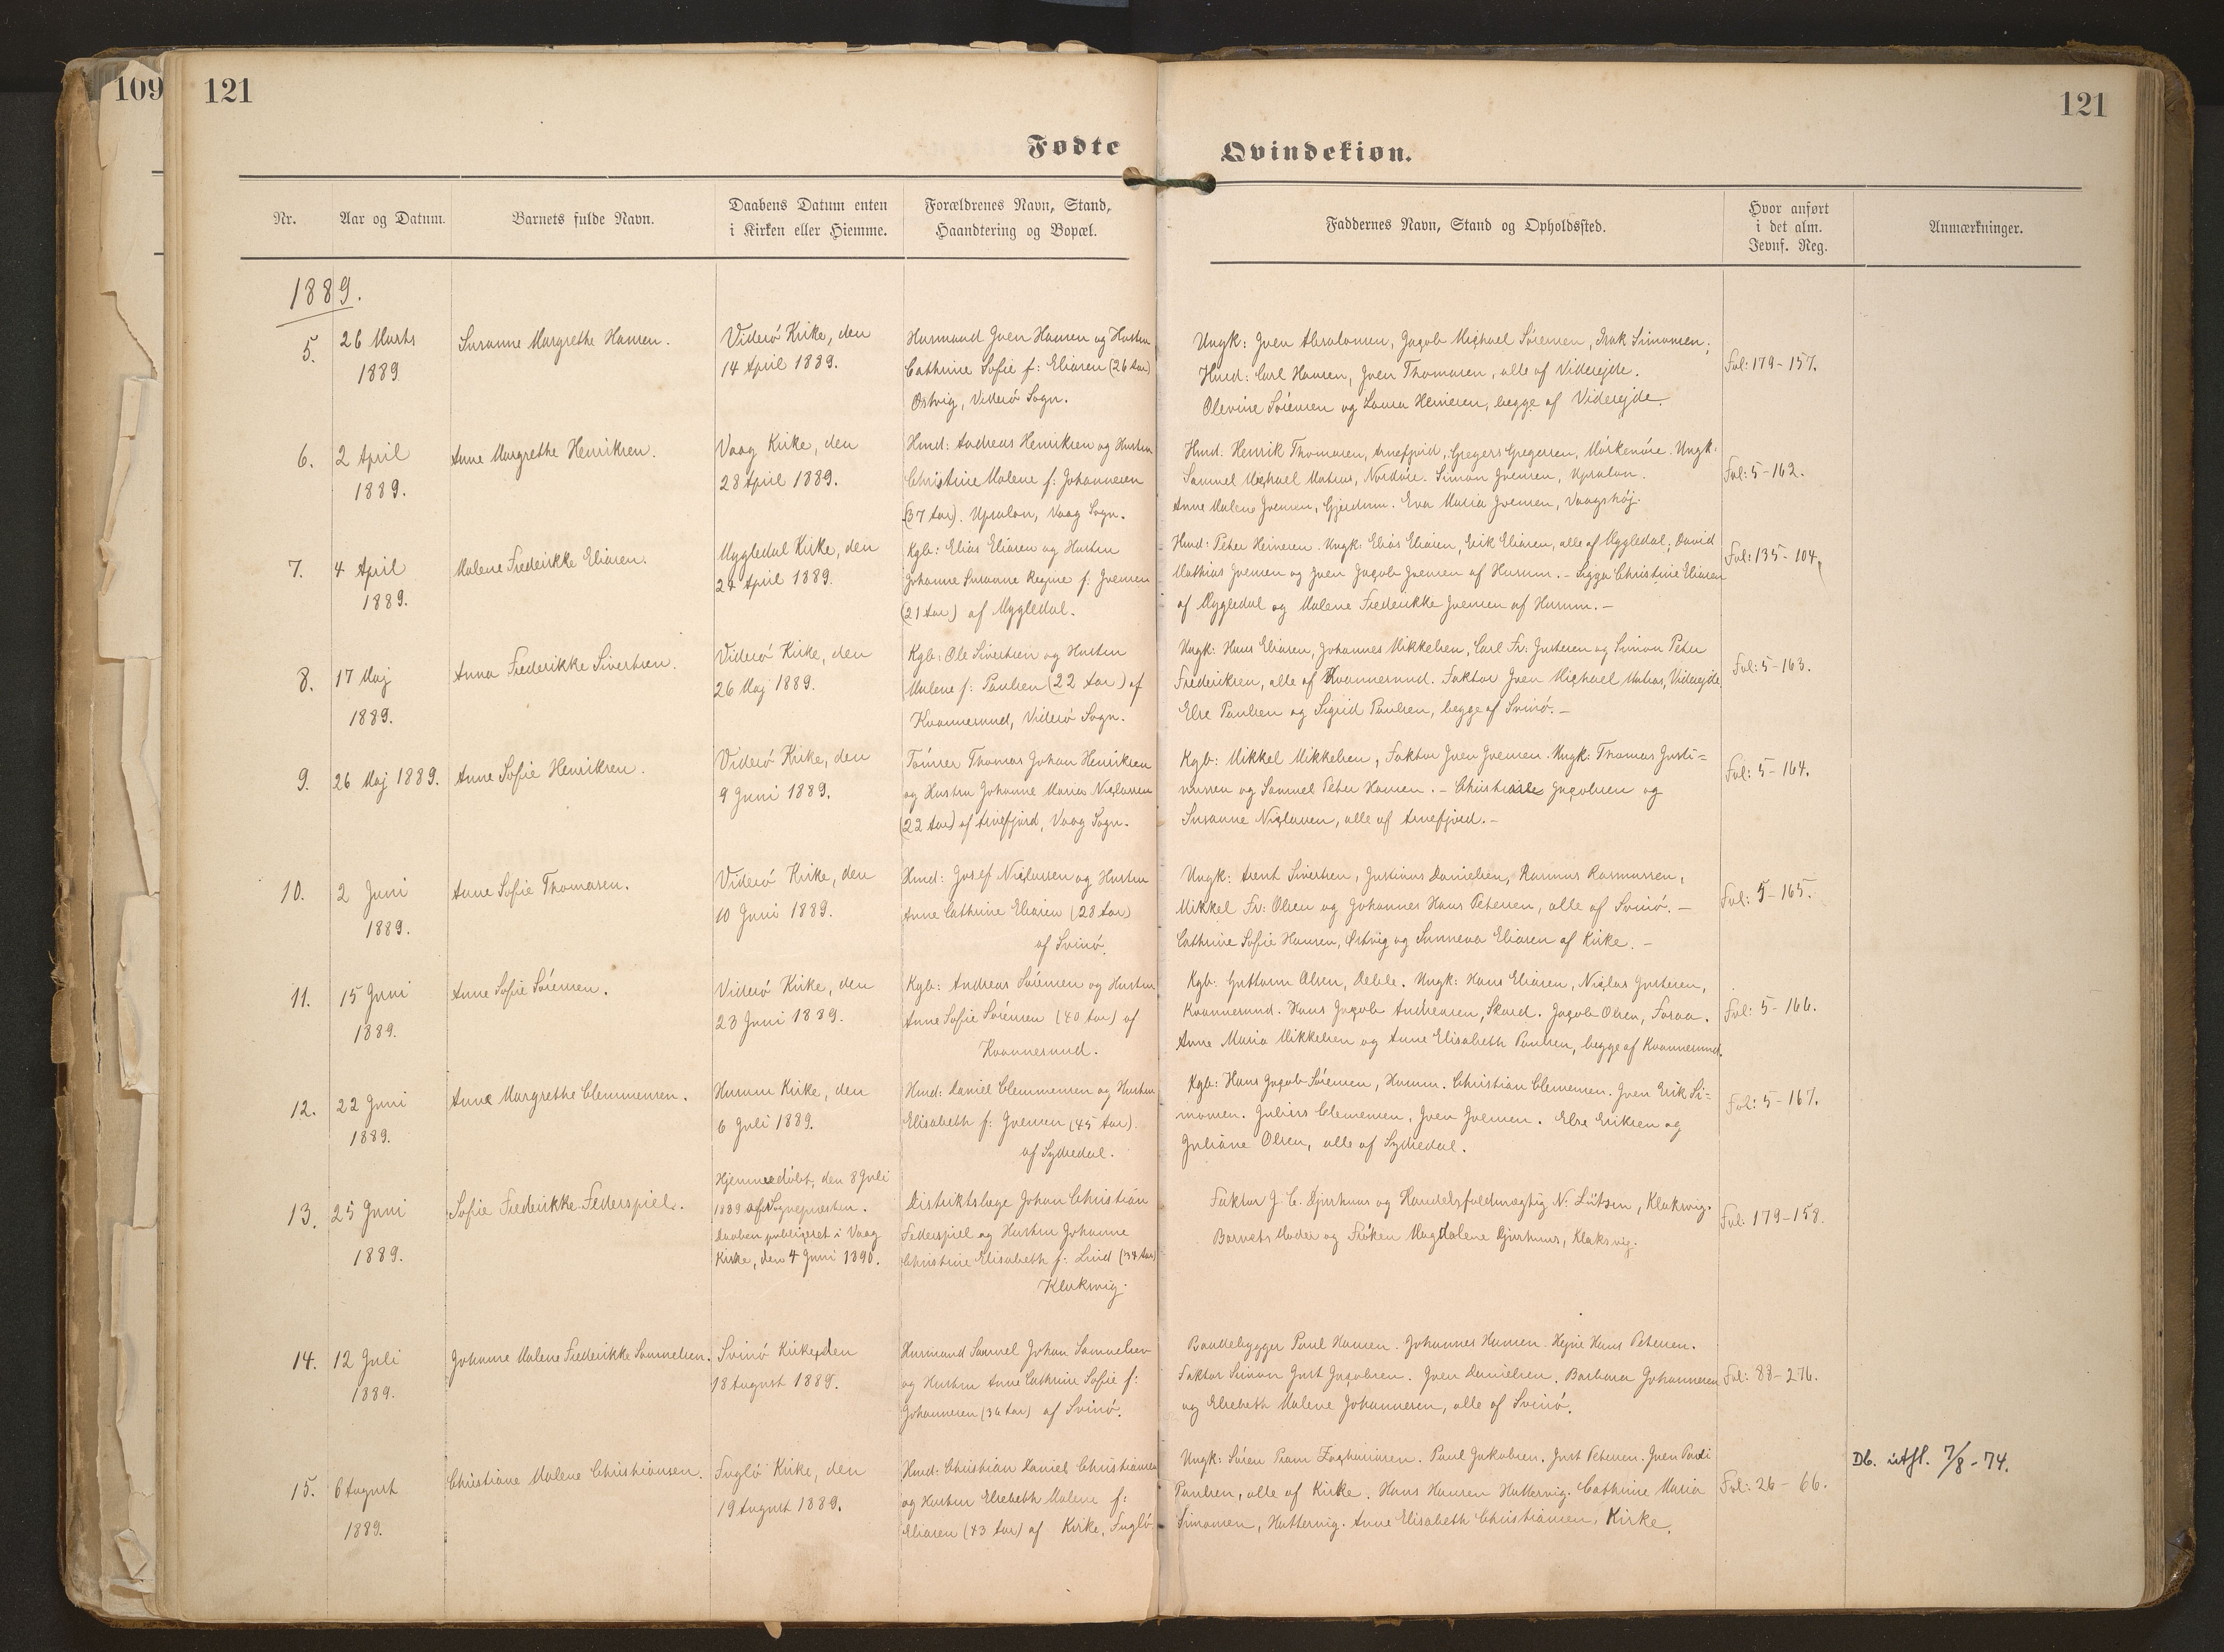 109
121
121
Fødte
Qvindekiøn.
Nr.
Aar og Datum.
Barnets fulde Navn.
Daabens Datum enten
i Kirken eller Hiemme.
Forældrenes Navn, Stand,
Haandtering og Bopæl.
Faddernes Navn, Stand og Opholdssted.
Hvor anført
i det alm.
Jevnf. Reg.
Anmærkninger.
1889.
5.
26 Marts
1889
Susanne Margrethe Hansen.
Viderö Kirke, den
14 April 1889.
Husmand Joen Hansen og Hustru
Cathrine Sofie f: Eliasen (26 Aar)
Östvig, Viderö Sogn.
Ungk: Joen Absalonsen, Jacob Michael Sörensen, Isak Simonsen;
Hmd: Carl Hansen, Joen Thomasen, alle af Viderejde.
Olevine Sörensen og Laura Heinesen, begge af Viderejde.
Fol: 179-157.
6.
2 April
1889.
Anne Margrethe Henriksen.
Vaag Kirke, den
28 April 1889.
Hmd: Andreas Henriksen og Hustru
Christine Malene f: Johannesen
(37 Aar). Upsalon, Vaag Sogn.
Hmd: Henrik Thomasen, Arnefjord, Gregers Gregersen, Mörkenöre. Ungk:
Samuel Michael Matras, Nordöre. Simon Joensen, Upsalon.
Anne Malene Joensen, Gjerdum. Eva Maria Joensen, Vaagshöj.
Fol: 5-162.
7.
4 April
1889.
Malene Frederikke Eliasen.
Mygledal Kirke, den
24 April 1889.
Kgb: Elias Eliasen og Hustru
Johanne Susanne Regine f: Joensen
(21 Aar) af Mygledal.
Hmd: Peter Heinesen. Ungk: Elias Eliasen, Erik Eliasen, alle af Mygledal; David
Mathias Joensen og Joen Jacob Joensen af Husum. - Sigga Christine Eliasen
af Mygledal og Malene Frederikke Joensen af Husum. -
Fol: 135-104.
8.
17 Maj
1889.
Anna Frederikke Sivertsen.
Viderö Kirke, den
26 Maj 1889.
Kgb: Ole Sivertsen og Hustru
Malene f: Poulsen (22 Aar) af
Kvannesund, Viderö Sogn.
Ungk: Hans Eliasen, Johannes Mikkelsen, Carl Fr: Justesen og Simon Peter
Frederiksen, alle af Kvannesund. Faktor Joen Michael Matras, Viderejde
Else Poulsen og Sigrid Poulsen, begge af Svinö. -
Fol: 5-163.
9.
26 Maj 1889.
Anne Sofie Henriksen.
Viderö Kirke, den
9 Juni 1889.
Tömrer Thomas Johan Henriksen
og Hustru Johanne Maria Niclassen
(22 Aar) af Arnefjord, Vaag Sogn.
Kgb: Mikkel Mikkelsen, Faktor Joen Joensen. Ungk: Thomas Justi=
nussen og Samuel Peter Hansen. - Christiane Jacobsen og
Susanne Niclasen, alle af Arnefjord. -
Fol: 5-164.
10.
2 Juni
1889.
Anne Sofie Thomasen.
Viderö Kirke, den
10 Juni 1889.
Hmd: Josef Niclassen og Hustru
Anne Cathrine Eliasen (28 Aar)
af Svinö.
Ungk: Arent Sivertsen, Justinus Danielsen, Rasmus Rasmussen,
Mikkel Fr: Olsen og Johannes Hans Petersen, alle af Svinö. -
Cathrine Sofie Hansen, Östvig og Sunneva Eliasen af Kirke. -
Fol: 5-165.
11.
15 Juni
1889.
Anne Sofie Sörensen.
Viderö Kirke, den
23 Juni 1889.
Kgb: Andreas Sörensen og Hustru
Anne Sofie Sörensen (40 Aar) af
Kvannesund.
Kgb: Guttorm Olsen, Deble. Ungk: Hans Eliasen, Niclas Justesen,
Kvannesund. Hans Jacob Andreasen, Skard. Jacob Olsen, Foraa.
Anne Maria Mikkelsen og Anne Elisabeth Poulsen, begge af Kvannesund.
Fol: 5-166.
12.
22 Juni
1889.
Anne Margrethe Clemmensen.
Husum Kirke, den
6 Juli 1889.
Hmd: Daniel Clemmensen og Hustru
Elisabeth f: Joensen (45 Aar).
af Sydredal.
Kgb: Hans Jacob Sörensen, Husum. Christian Clemensen. Joen Erik Si=
monsen. Julius Clemensen, Joen Joensen. Else Eriksen og
Juliane Olsen, alle af Sydredal.
Fol: 5-167.
13.
25 Juni
1889.
Sofie Frederikke Federspiel.
Hjemmedöbt, den 8 Juli
1889 af Sognepræsten.
Daaben publiceret i Vaag
Kirke, den 4 Juni 1890.
Distriktslæge Johan Christian
Federspiel og Hustru Johanne
Christine Elisabeth f: Lind (38 Aar)
Klaksvig.
Faktor J. C. Djurhuus og Handelsfuldmægtig N: Lützen, Klaksvig.
Barnets Moder og Fröken Magdalene Djurhuus, Klaksvig.
Fol: 179-158.
14.
12 Juli
1889.
Johanne Malene Frederikke Samuelsen.
Svinö Kirke, den
18 August 1889.
Husmand Samuel Johan Samuelsen
og Hustru Anne Cathrine Sofie f:
Johannesen (36 Aar) af Svinö.
Baadebygger Poul Hansen. Johannes Hansen. Hejne Hans Petersen.
Faktor Simon Just Jacobsen. Joen Danielsen. Barbara Johannesen
og Elsebeth Malene Johannesen, alle af Svinö.
Fol: 88-276.
15.
6 August
1889.
Christiane Malene Christiansen.
Fuglö Kirke, den
19 August 1889.
Hmd: Christian Daniel Christiansen
og Hustru Elsebeth Malene f:
Eliasen (43 Aar) af Kirke, Fuglö
Ungk: Sören Pram Zachariasen. Poul Jakobsen. Just Petersen. Joen Poul
Poulsen, alle af Kirke. Hans Hansen Hattervig. Cathrine Maria
Simonsen, Hattervig. Anne Elisabeth Christiansen, Kirke.
Fol: 26-66.
Db. útfl. 7/8-74.